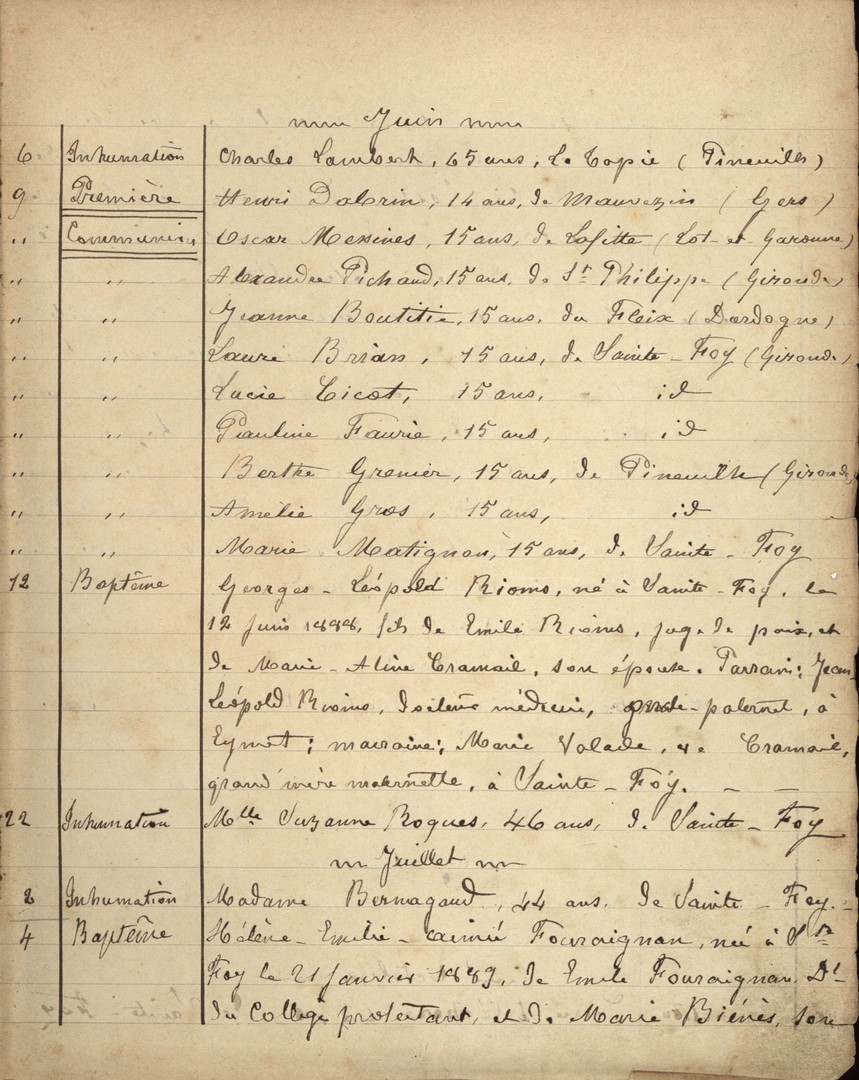 Juin
6 Inhumation Charles Lambert, 65 ans, La Topie (Pineuilh)
9 Première Henri Dabrin, 14 ans, de Mauvezin (Gers)
" Communion Oscar Messines, 15 ans, de Lafitte (Lot-et-Garonne)
" " Alexandre Pichaud, 15 ans, de St Philippe (Gironde)
" " Jeanne Boutitie, 15 ans, du Fleix (Dordogne)
" " Laure Brian, 15 ans, de Sainte-Foy (Gironde)
" " Lucie Cicot, 15 ans, id
" " Pauline Faurie, 15 ans, id
" " Berthe Grenier, 15 ans, de Pineuilh (Gironde)
" " Amélie Gros, 15 ans, id
" " Marie Matignon, 15 ans, de Sainte-Foy
12 Baptême Georges-Léopold Rioms, né à Sainte-Foy, le
12 Juin 1888, fils de Emile Rioms, juge de paix, et
de Marie-Aline Cramail, son épouse. Parrain: Jean-
Léopold Rioms, docteur médecin, oncle-paternel, à
Eymet; marraine; Marie Valade, ve Cramail,
grand'mère maternelle, à Sainte-Foy. - -
22 Inhumation Mlle Suzanne Roques, 46 ans, de Sainte-Foy
Juillet
2 Inhumation Madame Bernagaud, 44 ans. de Sainte-Foy.-
4 Baptême Hélène-Emilie-Aimée Fouraignan, née à Ste
Foy le 21 Janvier 1889, de Emile Fouraignan Dr
du College protestant, et de Marie Biénès, son